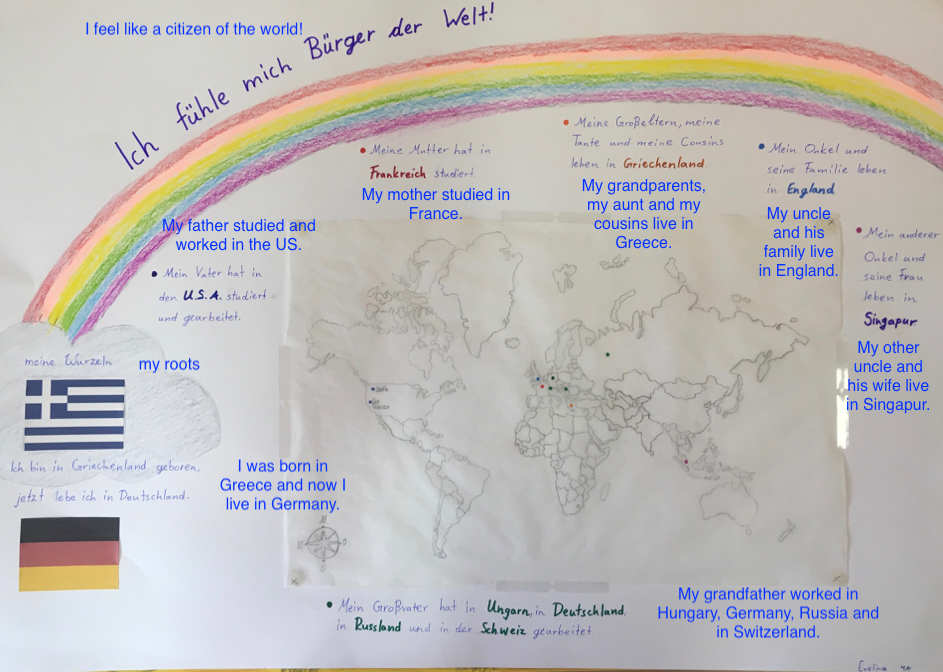 I feel like a citizen of the world!
Ich fühle mich Bürger der Welt!
Meine Mutter hat in
Frankreich studiert.
My mother studied in
France.
Meine Großeltern, meine
Tante und meine Cousins
leben in Griechenland.
My grandparents,
my aunt and my
cousins live in
Greece.
Mein Onkel und
seine Familie leben
in England
My uncle
and his
family live
in England.
Mein anderer
Onkel und
seine Frau
leben in
Singapur
My other
uncle and
his wife live
in Singapur.
My father studied and
worked in the US.
Mein Vater hat in
den U.S.A. studiert
und gearbeitet.
meine Wurzeln
my roots
Ich bin in Griechenland geboren,
jetzt lebe ich in Deutschland.
I was born in
Greece and now I
live in Germany.
N
Mein Großvater hat in Ungarn, in Deutschland,
in Russland und in der Schweiz gearbeitet.
My grandfather worked in
Hungary, Germany, Russia and
in Switzerland.
Evelina 4A